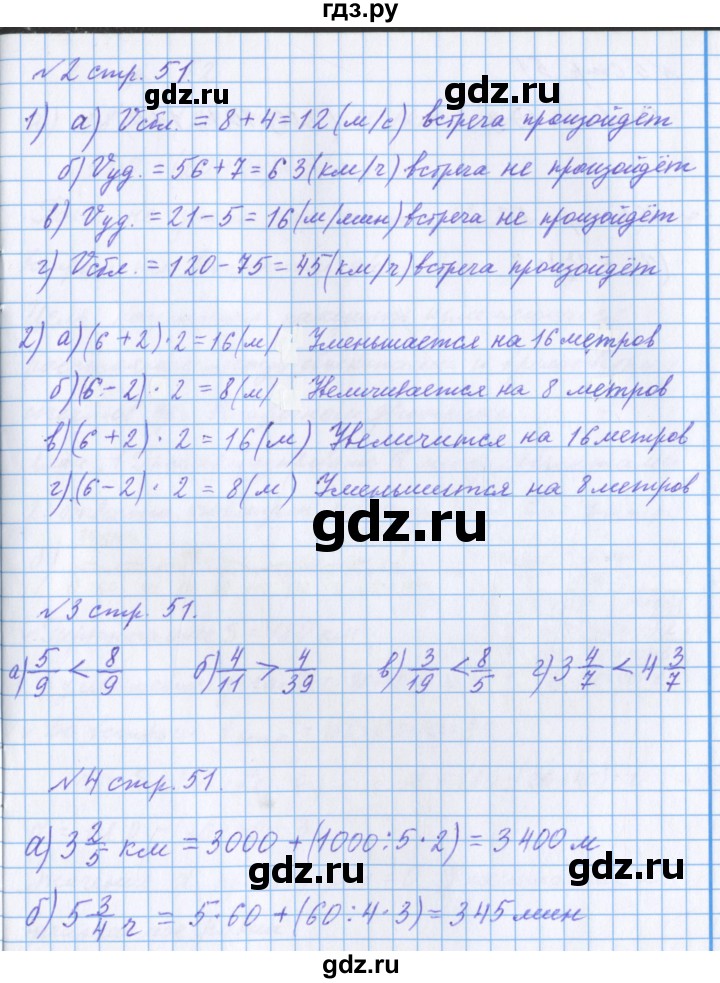 гдз.ру
№2 стр. 51.
gdz.ru gdz.ru
1) а) Vсбл. = 8 + 4 = 12 (м/с) встреча произойдёт
б) Vуд. = 56 + 7 = 63 (км/ч) встреча не произойдёт
в) Vуд. = 21 - 5 = 16 (м/мин) встреча не произойдёт
г) Vсбл. = 120 - 75 = 45 (км/ч) встреча произойдёт
gdz.ru gdz.ru
2) а) (6 + 2) · 2 = 16 (м) Уменьшается на 16 метров
б) (6 - 2) · 2 = 8 (м) Увеличивается на 8 метров
в) (6 + 2) · 2 = 16 (м) Увеличится на 16 метров
г) (6 - 2) · 2 = 8 (м) Уменьшится на 8 метров
gdz.ru
№3 стр. 51.
а) 5/9 < 8/9 б) 4/11 > 4/39 в) 3/19 < 8/5 г) 3 4/7 < 4 3/7
№4 стр. 51.
а) 3 2/5 км = 3000 + (1000 : 5 · 2) = 3400 м
gdz.ru gdz.ru
б) 5 3/4 ч = 5 · 60 + (60 : 4 · 3) = 345 мин
gdz.ru